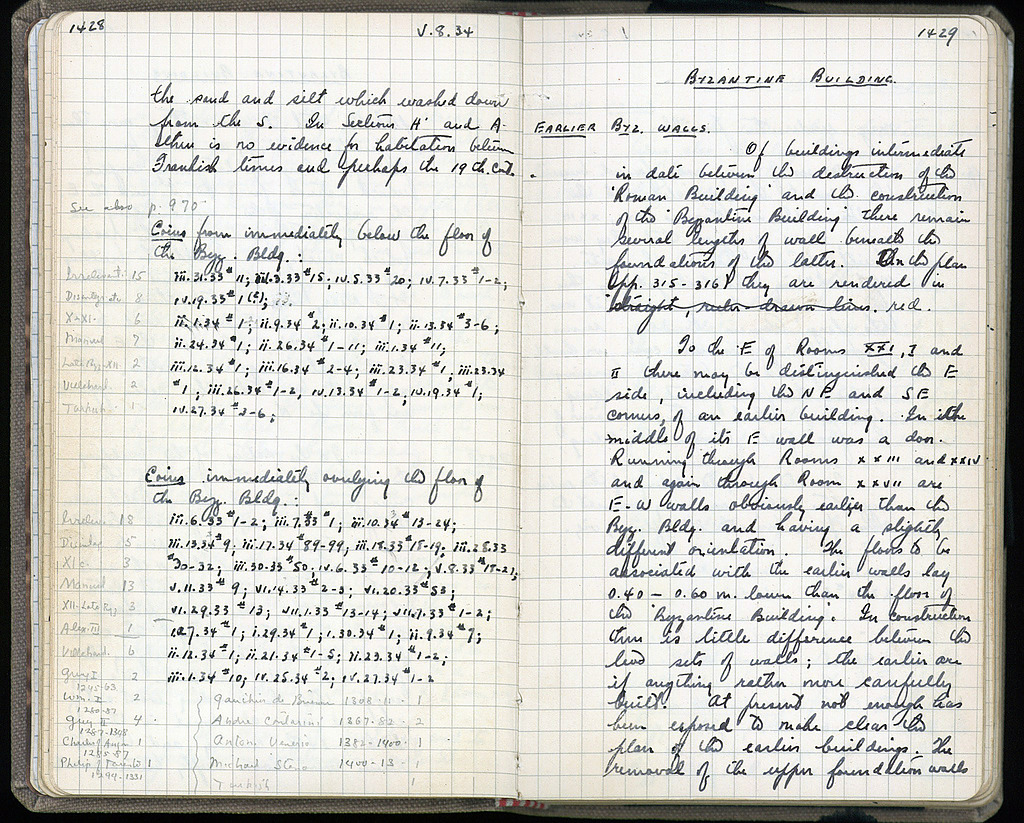 1428
V.8.34
the sand and silt which washed down
from the S. In Sections H' and A-
there is no evidence for habitation between
Frankish times and perhaps the 19th cent.
See also p. 970
Coins from immediately below the floor of
the Byz. Bldg.:
15 iii.31.33 #11; #15; iv.5.33 #20; iv.7.33 #1-2;
8 iv.19.33 #1 (?);
X-XI. 6 ii.1.34 #1; ii.9.34 #2; ii.10.34 #1; ii.13.34 #3-6;
Manuel 7 ii.24.34 #1; ii.26.34 #1-11; iii.1.34 #11;
Late Byz-XII 2 iii.12.34 #1; iii.16.34 #2-4; iii.23.34 #1, iii.23.34
Villehard. 2 #1, iii.26.34 #1-2, iv.13.34 #1-2, iv.19.34 #1;
Turkish 1 iv.27.34 #3-6;
Coins immediately overlying the floor of
the Byz. Bldg.:
18 iii.6.33 #1-2; iii.7.33 #1; iii.10.34 #13-24;
5 iii.13.34 #9; iii.17.34 #89-99; iii.18.33 #18-19; iii.28.33
XI c. 3 #30-32; iii.30.33 #50; v.6.33 #10-12; v.8.33 #18-21;
Manuel 13 v.11.33 #9; vi.14.33 #2-3; vi.20.33 #53;
XII-Late Byz 3 vi.29.33 #13; vii.1.33 #13-14; vii.7.33 #1-2;
Alex.III 1 1.27.34 #1; i.29.34 #1; 1.30.34 #1; ii.9.34 #9;
Villehard. 6 ii.12.34 #1; ii.21.34 #1-5; ii.23.34 #1-2;
Guy I 2 iii.1.34 #10; iv.25.34 #2; iv.27.34 #1-2
1245-63
Wm. I 2 Gauthier de Brienne 1308-11 - 1
1280-87
Guy II 4 Andre Contarini 1367-82 - 2
1287-1308
Charles of Anjou 1 Anton. Venerio 1382-1400 - 1
Philip of Taranto 1 Michael Steno 1400-13 - 1
1294-1331
Turkish 1
1429
BYZANTINE BUILDING.
EARLIER BYZ. WALLS.
Of buildings intermediate
in date between the destruction of the
'Roman Building' and the construction
of the 'Byzantine Building' there remain
several lengths of wall beneath the
foundations of the latter. On the plan
(pp. 315-316) they are rendered in
straight, ruler-drawn lines. red.
To the E of Rooms XXI, I and
II there may be distinguished the E
side, including the NE and SE
corners, of an earlier building. In the
middle of its E wall was a door.
Running through Rooms XXIII and XXIV
and again through Room XXVII are
E-W walls obviously earlier than the
Byz. Bldg. and having a slightly
different orientation. The floors to be
associated with the earlier walls lay
0.40 - 0.60 m. lower than the floor of
the 'Byzantine Building'. In construction
there is little difference between the
two sets of walls; the earlier are
if anything rather more carefully
built. At present not enough has
been exposed to make clear the
plan of the earlier buildings. The
removal of the upper foundation walls